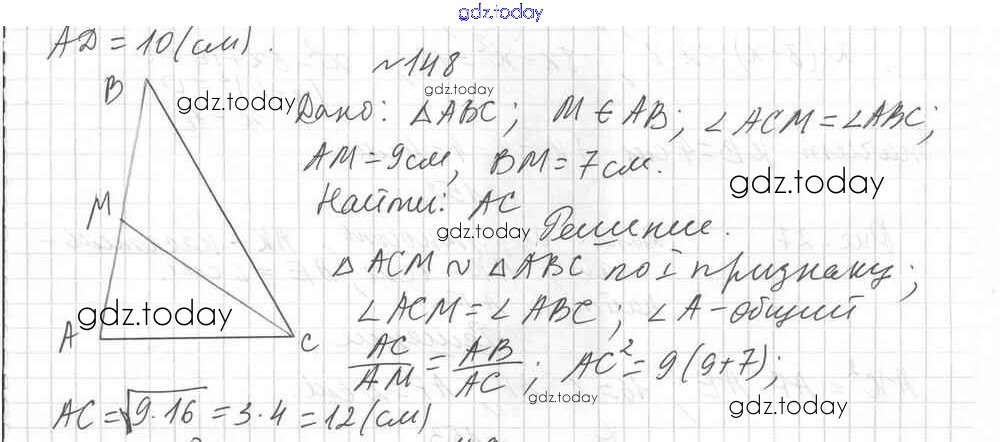 gdz.today
AD = 10 (см).
№148
B
gdz.today
gdz.today
Дано: △ABC; M ∈ AB; ∠ACM = ∠ABC;
AM = 9 см, BM = 7 см.
gdz.today
Найти: AC
M
gdz.today
Решение.
△ACM ~ △ABC по I признаку;
gdz.today
∠ACM = ∠ABC; ∠A - общий
A
C
AC/AM = AB/AC; AC² = 9(9+7);
gdz.today
gdz.today
AC = √9·16 = 3·4 = 12 (см)